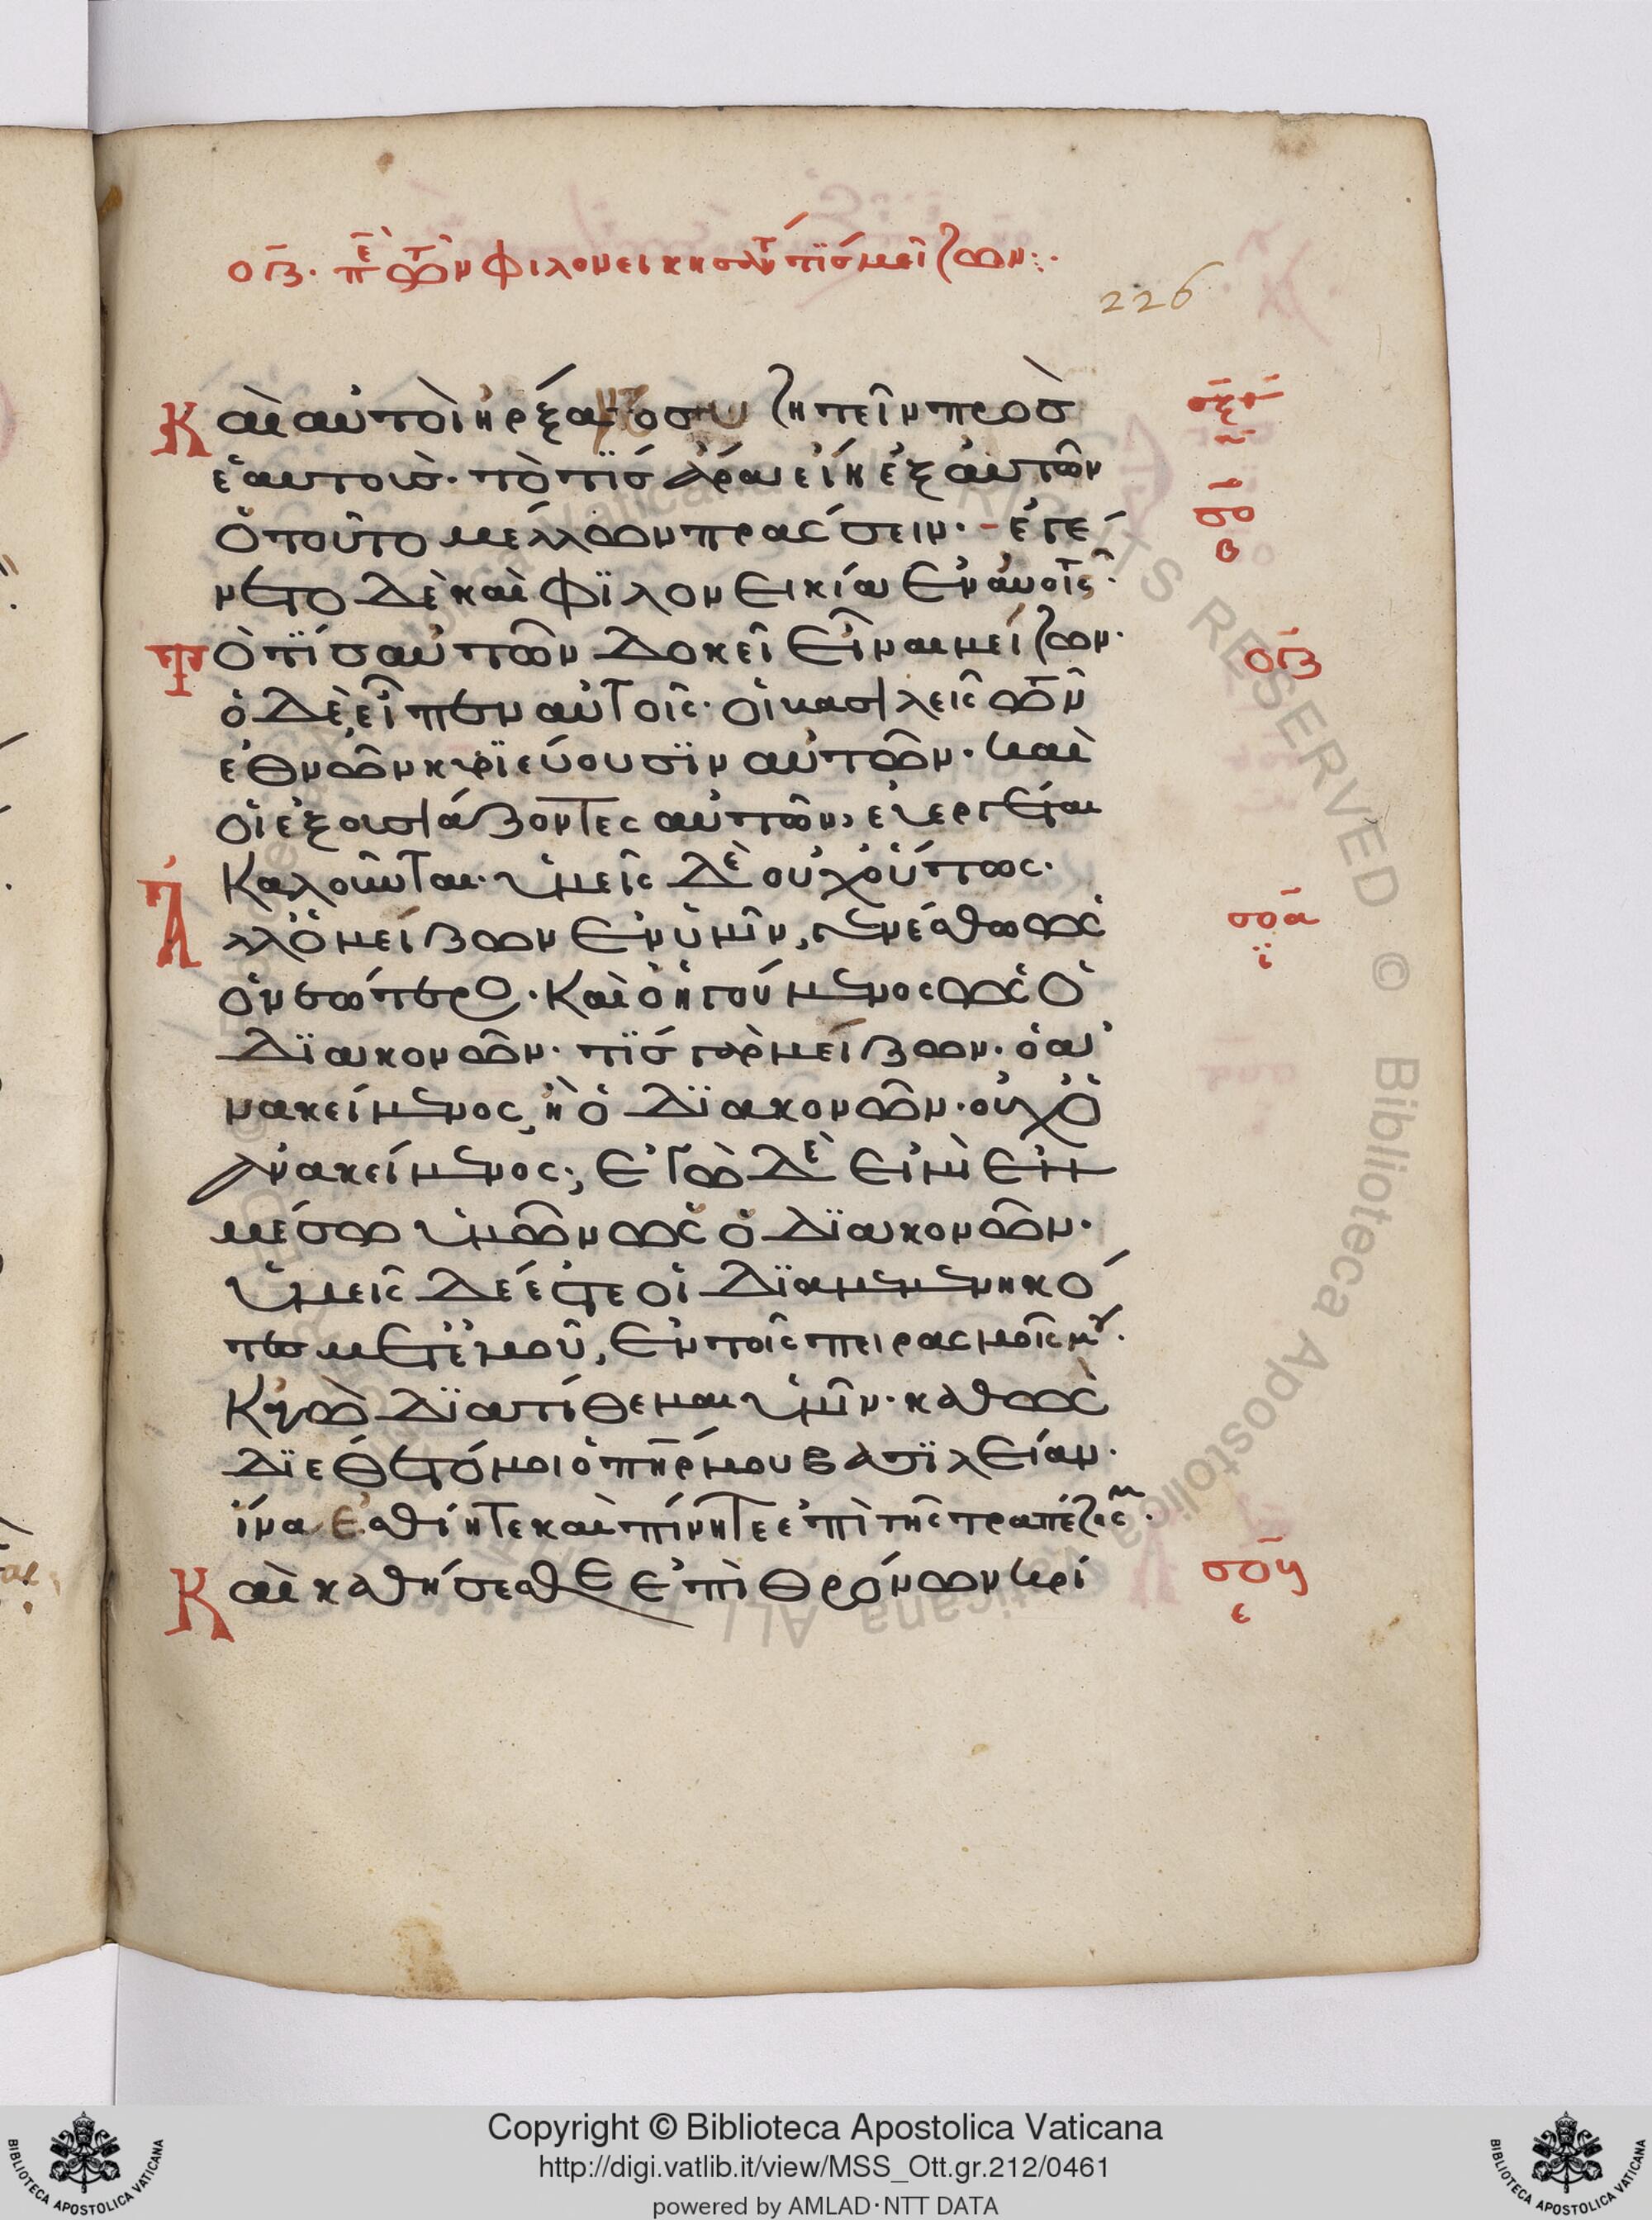 ος. πε τῶν φιλονεικησάντ τίς μείζων:.
226
Καὶ αὐτοὶ ἤρξατο συζητεῖν πρὸσ
σξθ
ἑαυτοὺσ. τὸ τίσ ἄρα εἴη ἐξ αὐτῶν
ὁ τοῦτο μέλλων πρασσειν. ἐγέ
σο
β
νετο δὲ καὶ φϊλονεικία ἐν αυοῖς.
Τὸ τίσ αὐτῶν δοκεῖ εἶναι μείζων.
ος
ὁ δὲ εἶπεν αὐτοῖς. οἱ βασιλεῖς τῶν
ἐθνῶν κυρϊεύουσϊν αὐτῶν. καὶ
οἱ ἐξουσιάζοντες αὐτῶν, εὐεργέται
καλοῦνται. ὑμεῖς δὲ οὐχ οὕτως.
Ἀλλ ὁ μείζων ἐν ὑμῖν, γενέσθω ὡς
σοα
ϊ
ὁ νεώτερο. καὶ ὁ ἡγούμενος ὡς ὁ
δϊακονῶν. τίσ γὰρ μείζων. ὁ ἀ
νακείμενος, ἢ ὁ δϊακονῶν. οὐχ ὁ
ἀνακείμενος; ἐγὼ δὲ εἰμὶ ἐν
μέσω ὑμῶν ὡς ὁ δϊακονῶν.
ὑμεῖς δέ ἐστε οἱ δϊαμεμενηκό
τες μετ ἐμοῦ, ἐν τοῖς πειρασμοῖς μου.
Κἀγὼ δϊατίθεμαι ὑμῖν. καθὼς
δϊέθετό μοι ὁ πηρ μου βασϊλείαν.
ἵνα ἐσθίητε καὶ πίνητε ἐπὶ τῆς τραπέζης μ.
Καὶ καθήσεσθε ἐπὶ θρόνων κρί
σοβ
ε
Copyright © Biblioteca Apostolica Vaticana
http://digi.vatlib.it/view/MSS_Ott.gr.212/0461
powered by AMLAD·NTT DATA
BIBLIOTECA APOSTOLICA VATICANA
BIBLIOTECA APOSTOLICA VATICANA